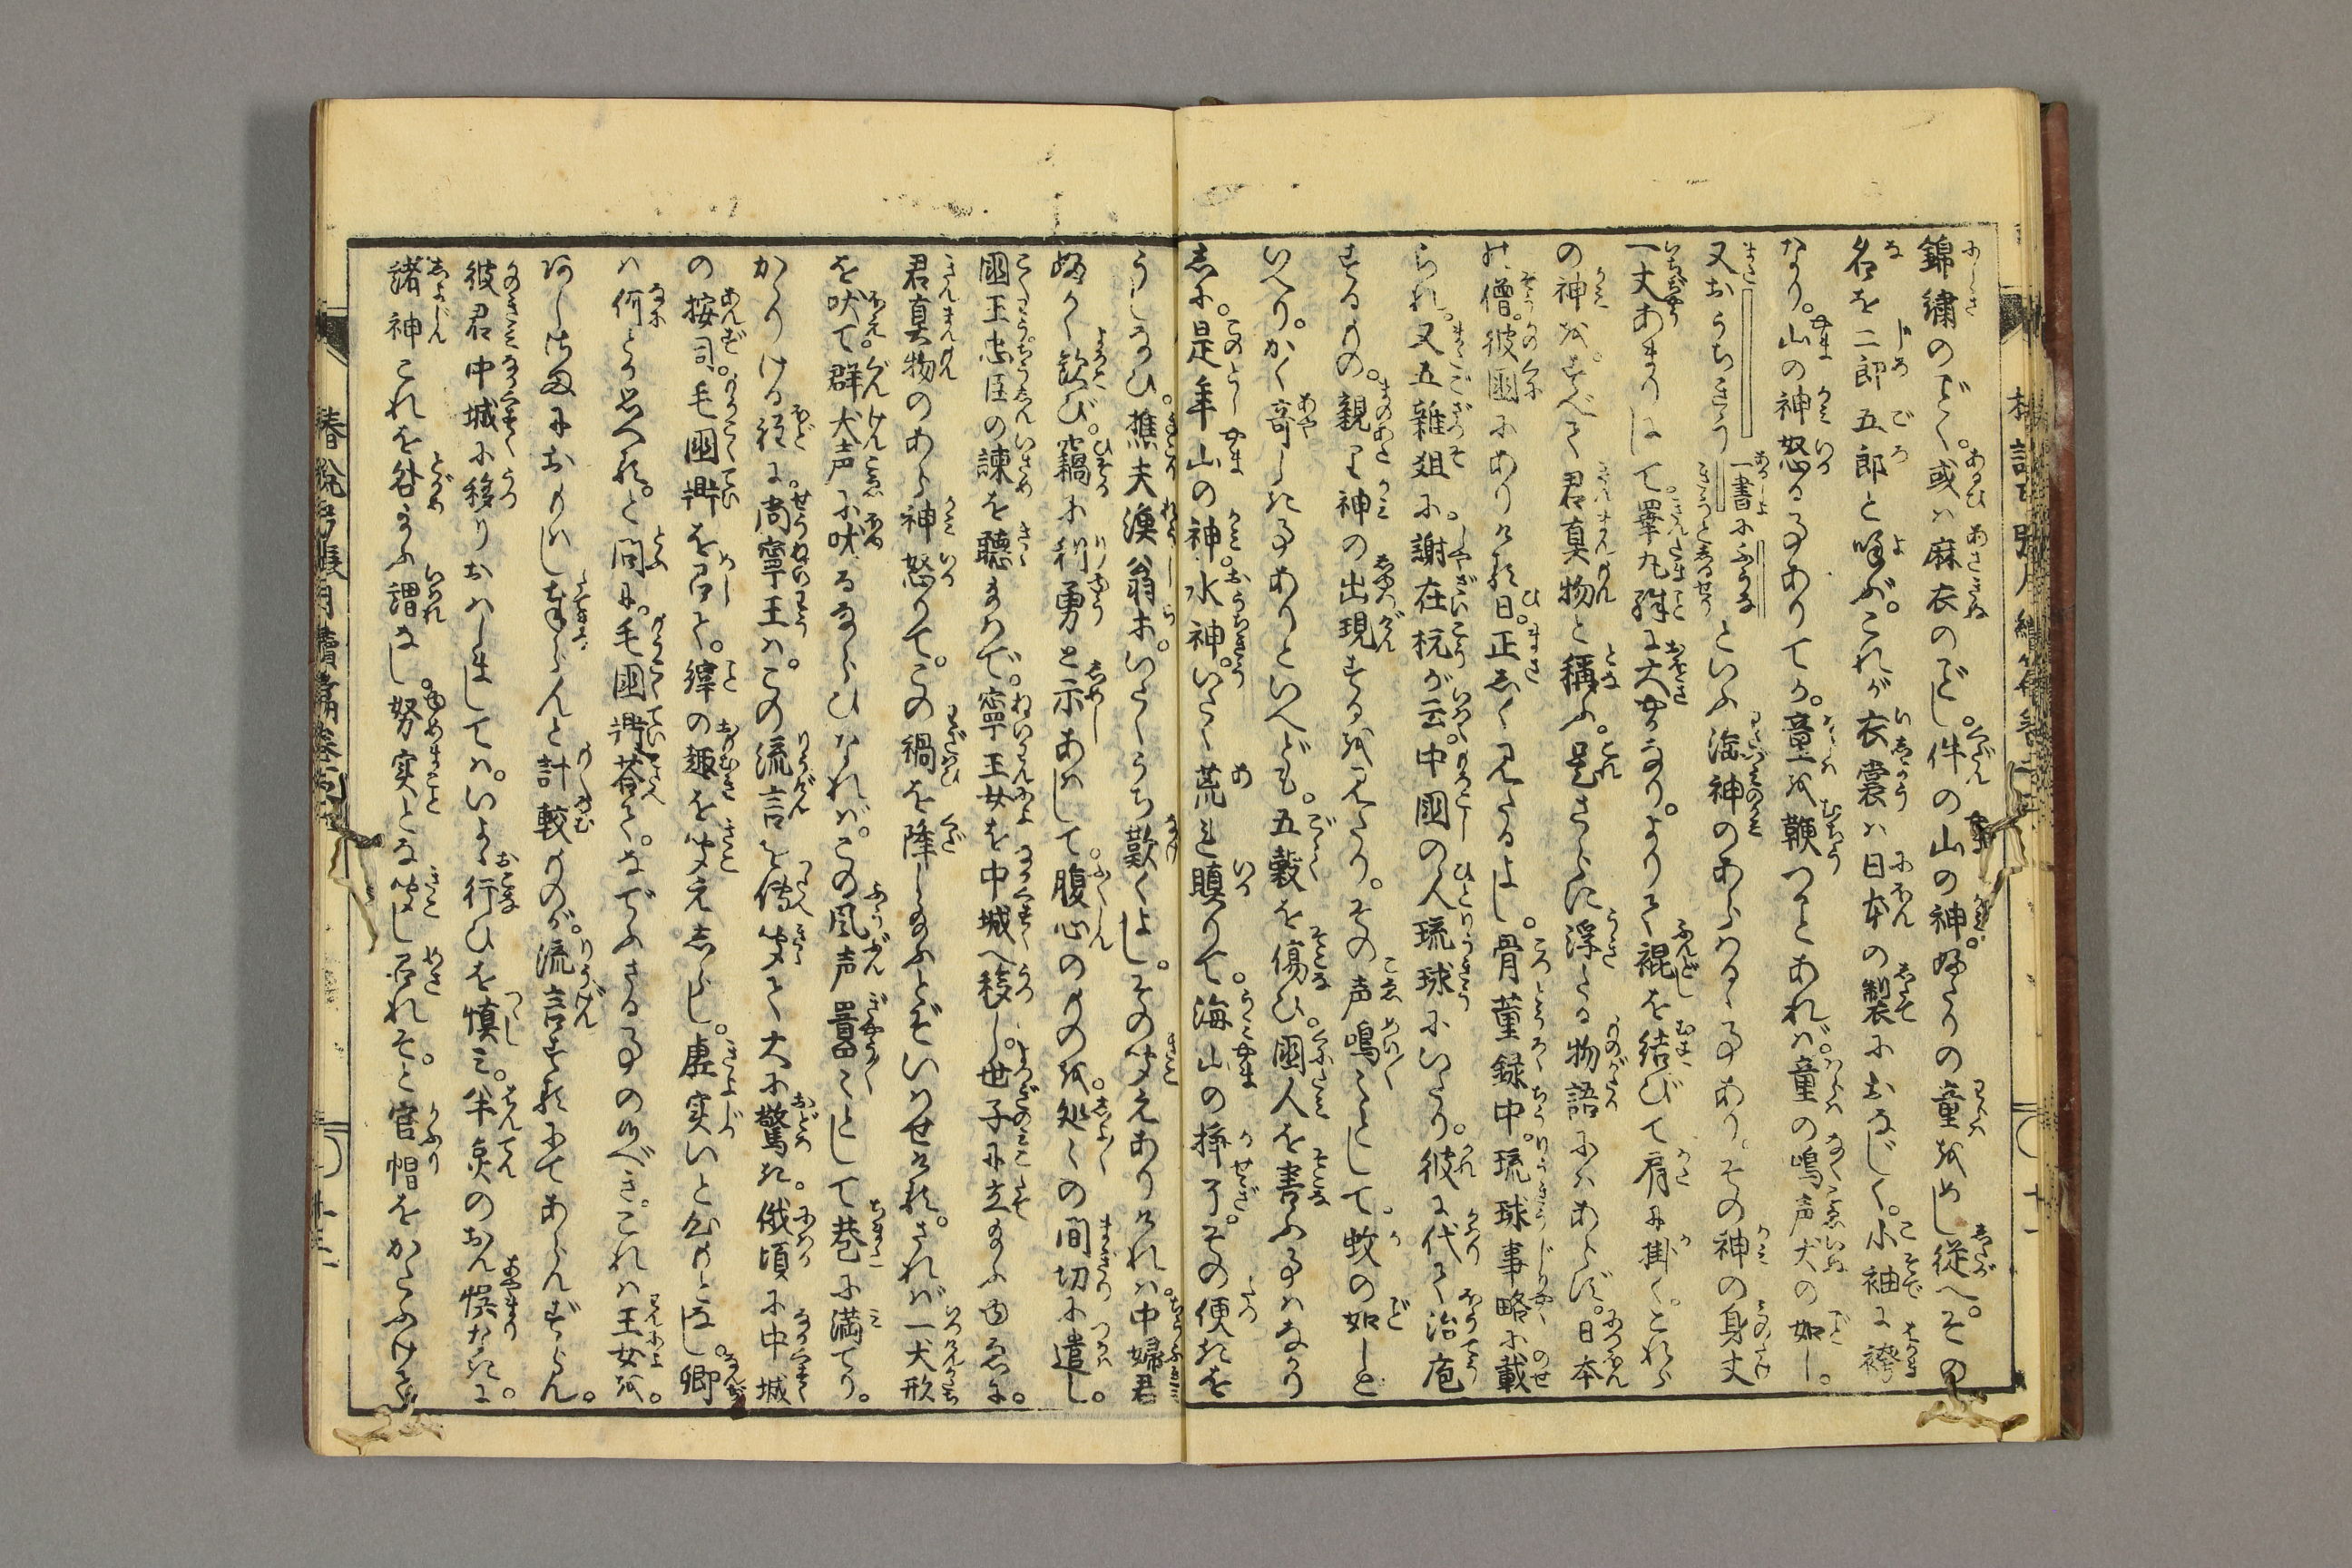 錦繡のごとく。或ハ麻衣のごとし。件の山の神。好みの童をめし従へ。その
名を二郎五郎と呼ぶ。これが衣裳ハ日本の製におなじく。小袖に袴
なり。山の神怒る事ありてハ。童を鞭つことあれバ。童の鳴声犬の如し。
又おうちきう 一書にふうか きうと云 といふ海神のあらハるゝ事あり。その神の身丈
一丈あまりにて。睾丸殊に大きなり。よりて褌を結びて肩に掛く。これら
の神を。すべて君真物と称ふ。是さらに浮たる物語にハあらず。日本
の僧。彼國にありける日。正しく見たるよし。骨董録中。琉球事略に載
られ。又五雜俎に。謝在杭が云。中國の人琉球にいたり。彼に代て治庖
するもの。親く神の出現するを見たり。その声鳴々として蚊の如しと
いへり。かく奇しき事ありといへども。五穀を傷ひ。國人を害ふ事ハなかり
しに。是年山の神。水神。いたく荒れ瞋りて。海山の挊了。その便著を
うしなひ。樵夫漁翁等。いたくうち歎くよし。その聞えありければ。中婦君
ふかく歓び。竊に利勇と示しあはして。腹心のものを。処々の間切に遣し。
國王忠臣の諫を聴給はで。寧王女を中城へ移し。世子に立給ふゆゑに。
君真物のあら神怒りて。この禍を降し給ふとぞいはせける。されバ一犬形
を吠て。群犬声に吠るならひなれバ。この風声囂々として巷に満てり。
かゝりける程に。尚寧王ハ。この流言を傳へ聞て大に驚き。俄頃に中城
の按司。毛國鼎を召て。縡の趣を聞えしらし。虚実いと心もとなし。卿
ハ何とか思へる。と問に。毛國鼎答て。などふさる事の候べき。これハ王女を。
あしさまにおもはし奉らんと計較ものが。流言するにてあらんずらん。
彼君中城に移りおハしましてハ。いよゝ行ひを慎み。半点のおん悞なきに。
諸神これを咎給ふ謂なし。努実とな聞し召れそ。と官帽をかたふけさ